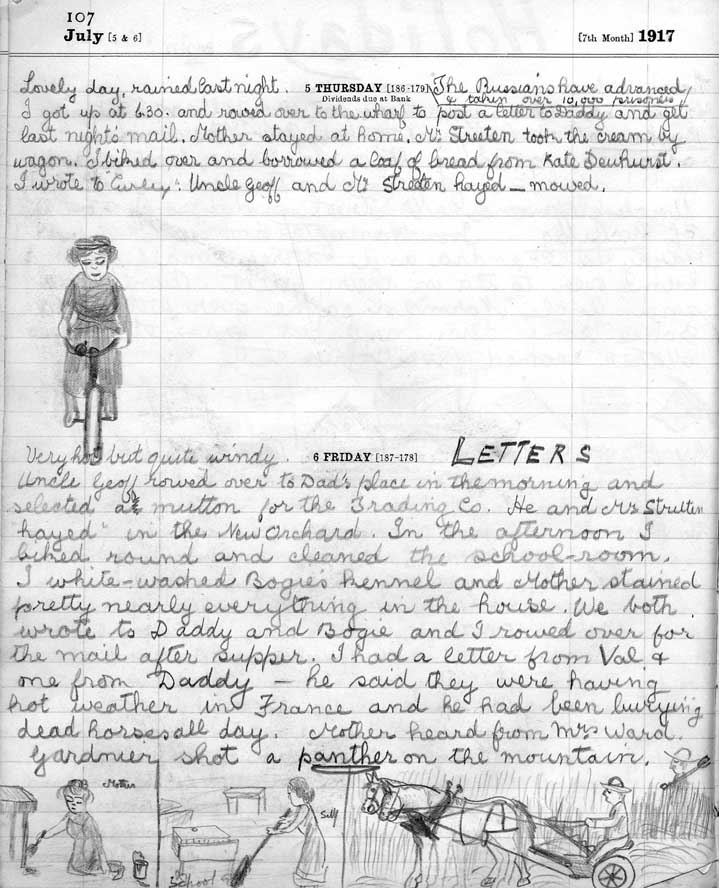 107
July [5 & 6] [7th Month] 1917
Lovely day, rained last night. 5 THURSDAY [186-179] The Russians have advanced,
Dividends due at Bank & taken over 10,000 prisoners
I got up at 6.30. and rowed over to the wharf to post a letter to Daddy and get
last night's mail. Mother stayed at home. Mr Streeten took the cream by
wagon. I biked over and borrowed a loaf of bread from Kate Dewhurst.
I wrote to "Curley". Uncle Geoff and Mr Streeten hayed — mowed.
Very hot but quite windy. 6 FRIDAY [187-178] LETTERS
Uncle Geoff rowed over to Dad's place in the morning and
selected a mutton for the Trading Co. He and Mr Streeten
"hayed" in the New Orchard. In the afternoon I
biked round and cleaned the school-room.
I white-washed Bogie's kennel and Mother stained
pretty nearly everything in the house. We both
wrote to Daddy and Bogie and I rowed over for
the mail after supper. I had a letter from Val &
one from Daddy — he said they were having
hot weather in France and he had been burying
dead horses all day. Mother heard from Mrs Ward.
Gardnier shot a panther on the mountain.
Mother
Self
School